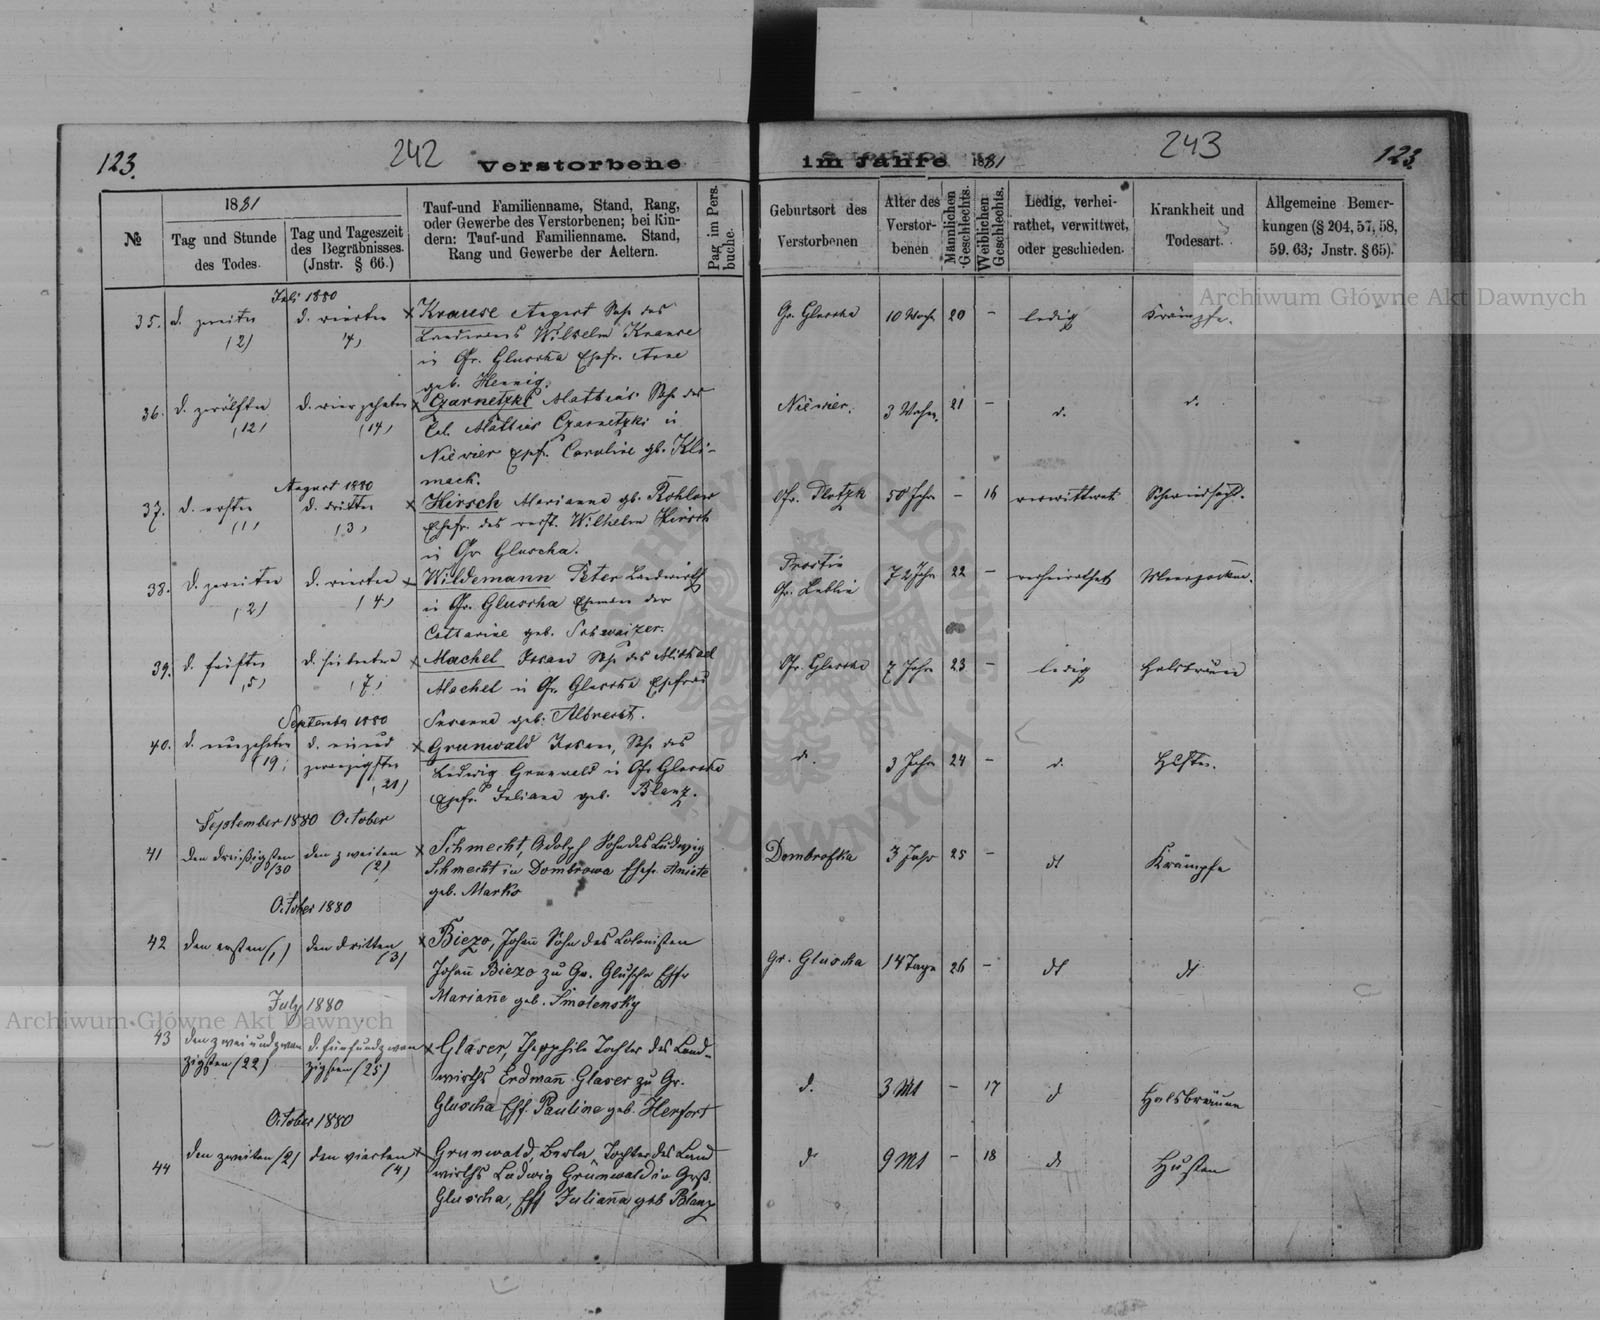 123.
242
Verstorbene
im Jahre 1881
243
123.
№
1881
Tag und Stunde
des Todes.
Tag und Tageszeit
des Begräbnisses.
(Jnstr. § 66.)
Tauf-und Familienname, Stand, Rang,
oder Gewerbe des Verstorbenen; bei Kin-
dern: Tauf-und Familienname. Stand,
Rang und Gewerbe der Aeltern.
Pag im Pers.
buche.
Geburtsort des
Verstorbenen
Alter des
Verstor-
benen
Männlichen
Geschlechts.
Weiblichen
Geschlechts.
Ledig, verhei-
rathet, verwittwet,
oder geschieden.
Krankheit und
Todesart.
Allgemeine Bemer-
kungen (§ 204, 57, 58,
59. 63; Jnstr. § 65).
Archiwum Główne Akt Dawnych
Juli 1880
35. d. zweiten d. vierten × Krause August Sohn des Gr. Gluscha 10 Woch 20 – ledig Krämpfe.
(2) (4) Landmanns Wilhelm Krause
in Gr. Gluscha Ehefr. Anna
geb. Hennig.
36. d. zwölften d. vierzehnten × Czarnetzki Mathias Sohn des Niewier. 3 Wochn. 21 – d. d.
(12) (14) Col. Mathias Czarnetzki in
Niewier Ehefr. Caroline gb. Kli-
mack.
August 1880
37. d. ersten d. dritten × Hirsch Marianna gb. Rohlow Gr. Plotzk 50 Jahr – 16 verwittwet Schwindsucht.
(1) (3) Ehefr. des verst. Wilhelm Hirsch
in Gr. Gluscha.
38. d. zweiten d. vierten × Wildemann Peter Landwirth 72 Jahr 22 – verheirathet
(2) (4) in Gr. Gluscha Ehemann der Gr. Lublin
Catharine geb. Schwaizer.
39. d. fünften d. siebenten × Machel Johann Sohn des Michael Gr. Gluscha 7 Jahr 23 – ledig Halsbräune
(5) (7) Machel in Gr. Gluscha Ehefrau
Susanna geb. Albrecht.
September 1880
40. d. neunzehnten d. einund × Grunwald Johann, Sohn des d. 3 Jahr 24 – d. Husten.
(19) zwanzigsten Ludwig Grunwald in Gr. Gluscha
(21) Ehefr. Juliana geb. Blanz.
September 1880 October
41 den dreißigsten den zweiten × Schmecht, Adolph Sohn des Ludwig Dombrofka 3 Jahr 25 – dt Krämpfe
(30 (2) Schmecht in Dombrowa Ehefr. Aniete
geb. Marks
October 1880
42 den ersten (1) den dritten × Biezo, Johañ Sohn des Colonisten Gr. Gluscha 14 Tage 26 – dt dt
(3) Johañ Biezo zu Gr. Gluscha Ehfr
Mariañe geb. Smolensky
July 1880
Archiwum Główne Akt Dawnych
43 den zweiundzwan d. fünfundzwan × Glaser, Theophile Tochter des Land- d. 3 Mt – 17 d Halsbräune
zigsten (22) zigsten (25) wirths Erdmañ Glaser zu Gr.
Gluscha Eff. Pauline geb. Herfort
October 1880
44 den zweiten (2) den vierten × Grunwald, Berta, Tochter des Land d. 9 Mt – 18 dt Husten
(4) wirths Ludwig Grunwald in Groß.
Gluscha, Eff Juliaña geb Blanz